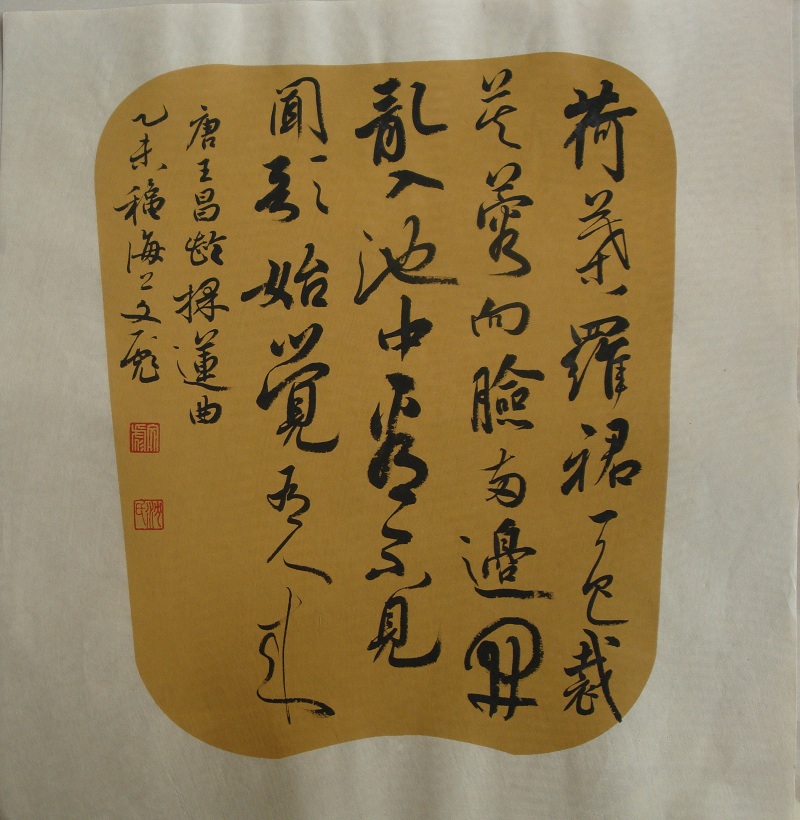 荷葉羅裙一色裁
芙蓉向臉兩邊開
亂入池中看不見
聞歌始覺有人來
唐王昌齡採蓮曲
乙未穐海上文彪